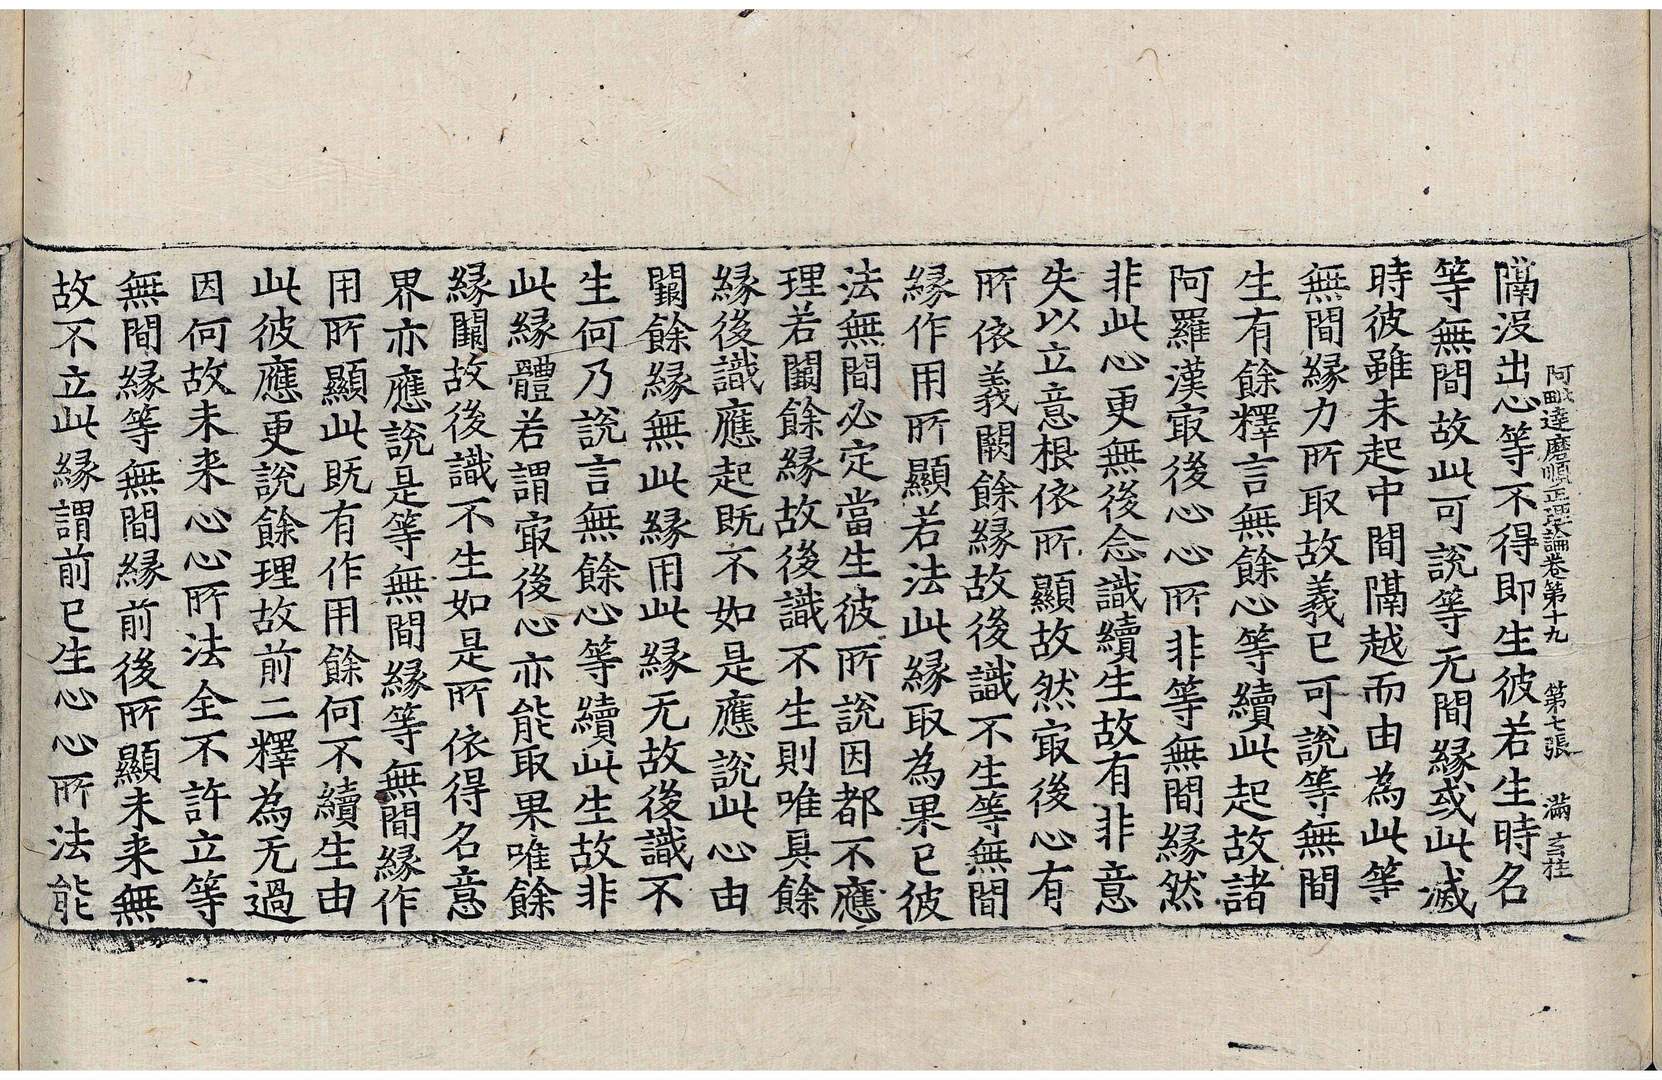 阿毗達磨順正理論卷第十九　第七張　滿
隔沒出心等不得即生彼若生時名
等無間故此可說等无間緣或此滅
時彼雖未起中間隔越而由為此等
無間緣力所取故義已可說等無間
生有餘釋言無餘心等續此起故諸
阿羅漢㝡後心心所非等無間緣然
非此心更無後念識續生故有非意
失以立意根依所顯故然㝡後心有
所依義闕餘緣故後識不生等無間
緣作用所顯若法此緣取為果已彼
法無間必定當生彼所說因都不應
理若闕餘緣故後識不生則唯具餘
緣後識應起既不如是應說此心由
闕餘緣無此緣用此緣无故後識不
生何乃說言無餘心等續此生故非
此緣體若謂㝡後心亦能取果唯餘
緣闕故後識不生如是所依得名意
界亦應說是等無間緣等無間緣作
用所顯此既有作用餘何不續生由
此彼應更說餘理故前二釋為无過
因何故未来心心所法全不許立等
無間緣等無間緣前後所顯未来無
故不立此緣謂前已生心心所法能